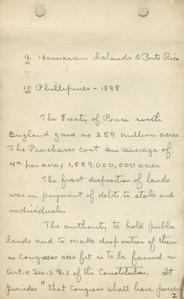 9. Hawaiian Islands & Porto Rico
10 Phillipines - 1898
The Treaty of Peace with
England gave us 259 million acres
The Purchases cost an average of
4¢ per acre, 1,889,000,000 acres
The first disposition of lands
was in payment of debts to states and
individuals.
The authority to hold public
lands and to make disposition of them
as Congress sees fit is to be found in
Art. IV Sec. 3 of the Constitution. It
provides "that Congress shall have power